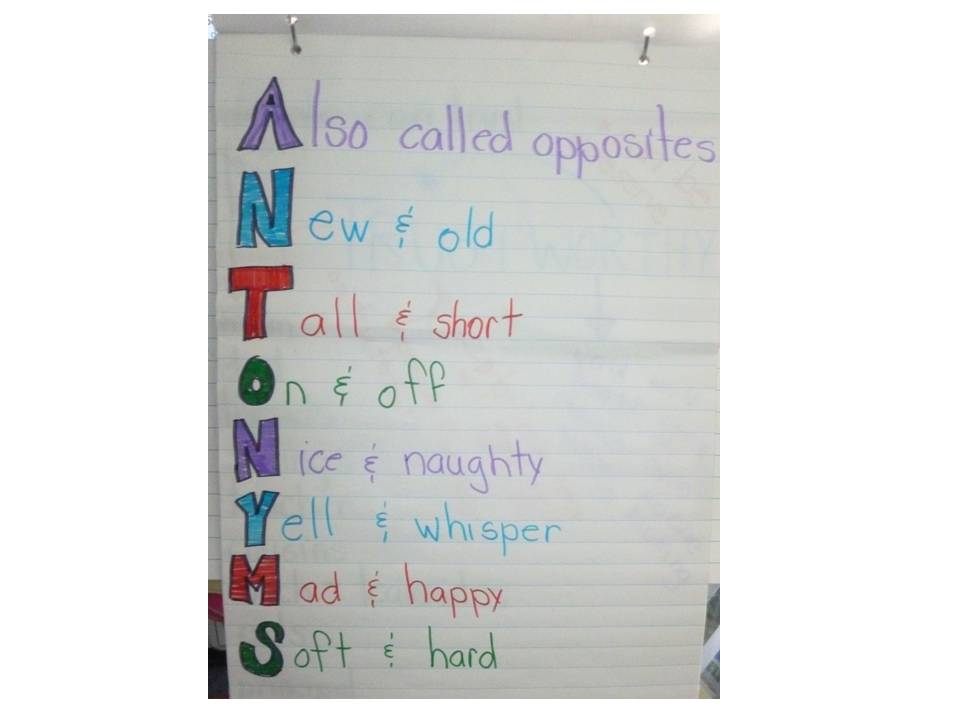 Also called opposites
New & old
Tall & short
On & off
Nice & naughty
Yell & whisper
Mad & happy
Soft & hard